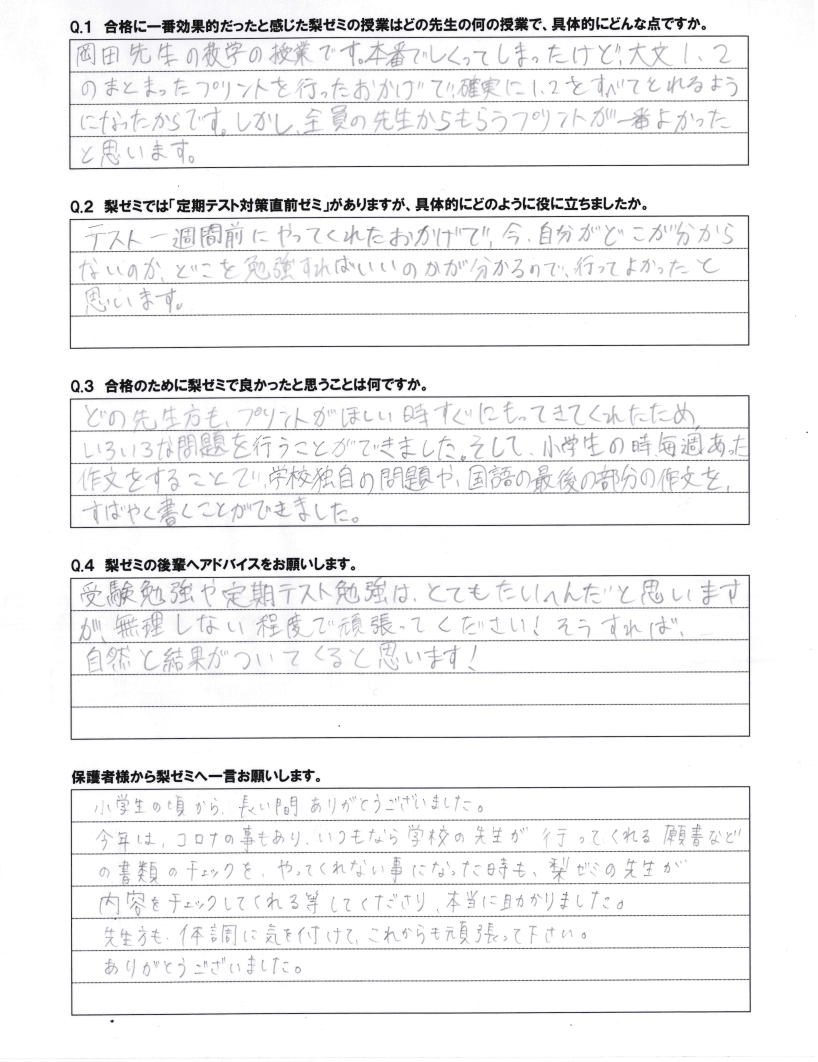 Q.1 合格に一番効果的だったと感じた梨ゼミの授業はどの先生の何の授業で、具体的にどんな点ですか。
岡田先生の数学の授業です。本番でしくってしまったけど、大文1、2
のまとまったプリントを行ったおかげで、確実に1、2をすべてとれるよう
になったからです。しかし、全員の先生からもらうプリントが一番よかった
と思います。
Q.2 梨ゼミでは「定期テスト対策直前ゼミ」がありますが、具体的にどのように役に立ちましたか。
テスト一週間前にやってくれたおかげで、今、自分がどこが分から
ないのか、どこを勉強すればいいのかが分かるので、行ってよかったと
思います。
Q.3 合格のために梨ゼミで良かったと思うことは何ですか。
どの先生方も、プリントがほしい時すぐにもってきてくれたため、
いろいろな問題を行うことができました。そして、小学生の時、毎週あった
作文をすることで、学校独自の問題や、国語の最後の部分の作文を、
すばやく書くことができました。
Q.4 梨ゼミの後輩へアドバイスをお願いします。
受験勉強や定期テスト勉強は、とてもたいへんだと思います
が、無理しない程度で頑張ってください!そうすれば、
自然と結果がついてくると思います!
保護者様から梨ゼミへ一言お願いします。
小学生の頃から、長い間ありがとうございました。
今年は、コロナの事もあり、いつもなら学校の先生が行ってくれる願書など
の書類のチェックを、やってくれない事になった時も、梨ゼミの先生が
内容をチェックしてくれる等してくださり、本当に助かりました。
先生方も、体調に気を付けて、これからも頑張って下さい。
ありがとうございました。